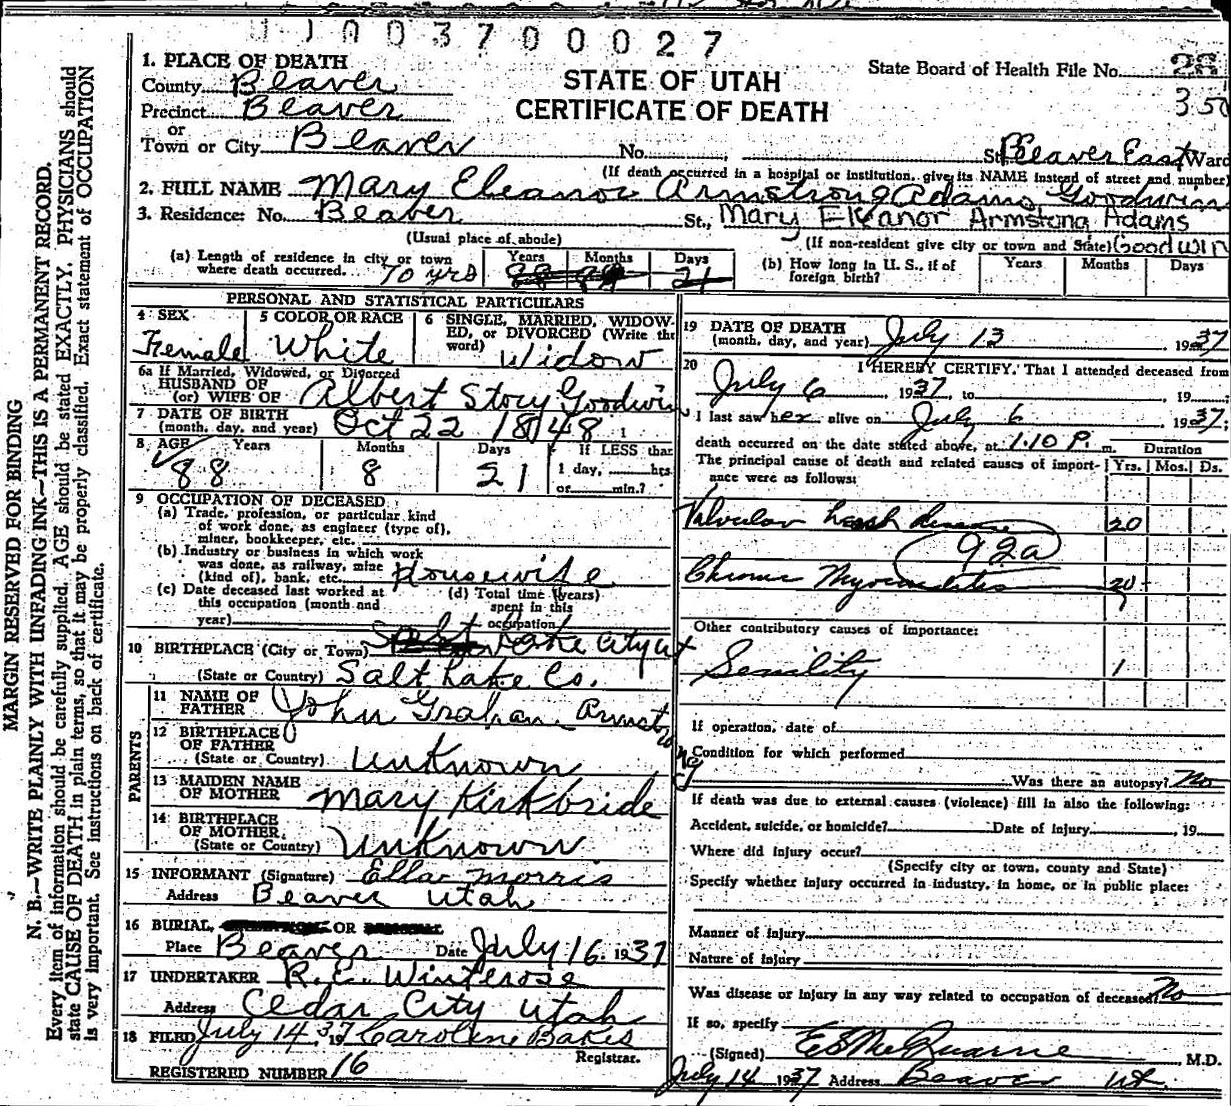 1 0 0 3 7 0 0 0 2 7
MARGIN RESERVED FOR BINDING
N. B.—WRITE PLAINLY WITH UNFADING INK—THIS IS A PERMANENT RECORD.
Every item of information should be carefully supplied. AGE should be stated EXACTLY. PHYSICIANS should
state CAUSE OF DEATH in plain terms, so that it may be properly classified. Exact statement of OCCUPATION
is very important. See instructions on back of certificate.
STATE OF UTAH
CERTIFICATE OF DEATH
State Board of Health File No.
350
1. PLACE OF DEATH
County Beaver
Precinct Beaver
or
Town or City Beaver No. St. Beaver East Ward
(If death occurred in a hospital or institution, give its NAME instead of street and number)
2. FULL NAME Mary Eleanor Armstrong Adams Goodwin
3. Residence: No. Beaver St., Mary Eleanor Armstong Adams
(Usual place of abode) (If non-resident give city or town and State) Goodwin
(a) Length of residence in city or town where death occurred. 70 yrs Years Months Days 21
(b) How long in U. S., if of foreign birth? Years Months Days
PERSONAL AND STATISTICAL PARTICULARS
4 SEX Female
5 COLOR OR RACE White
6 SINGLE, MARRIED, WIDOWED, or DIVORCED (Write the word) Widow
6a If Married, Widowed, or Divorced
HUSBAND OF
(or) WIFE OF Albert Story Goodwin
7 DATE OF BIRTH
(month, day, and year) Oct 22 1848
8 AGE Years 88 Months 8 Days 21 If LESS than
1 day, hrs.
or min.?
9 OCCUPATION OF DECEASED
(a) Trade, profession, or particular kind
of work done, as engineer (type of),
miner, bookkeeper, etc.
(b) Industry or business in which work
was done, as railway, mine
(kind of), bank, etc. Housewife
(c) Date deceased last worked at
this occupation (month and
year)
(d) Total time (years)
spent in this
occupation
10 BIRTHPLACE (City or Town) Salt Lake City Ut
(State or Country) Salt Lake Co.
PARENTS
11 NAME OF
FATHER John Graham Armstrong
12 BIRTHPLACE
OF FATHER
(State or Country) Unknown
13 MAIDEN NAME
OF MOTHER Mary Kirkbride
14 BIRTHPLACE
OF MOTHER
(State or Country) Unknown
15 INFORMANT (Signature) Ella Morris
Address Beaver Utah
16 BURIAL, OR
Place Beaver Date July 16. 1937
17 UNDERTAKER R. C. Winterose
Address Cedar City Utah
18 FILED July 14. 1937 Caroline Bakes
Registrar.
REGISTERED NUMBER 16
19 DATE OF DEATH
(month, day, and year) July 13 1937
20 I HEREBY CERTIFY. That I attended deceased from
July 6, 1937, to , 19 ;
I last saw her alive on July 6, 1937;
death occurred on the date stated above, at 1.10 P. m. Duration
The principal cause of death and related causes of importance were as follows: Yrs. Mos. Ds.
Valvular heart disease 20
92a
Chronic Myocarditis 20
Other contributory causes of importance:
Senility 1
If operation, date of
Condition for which performed
Was there an autopsy? No
If death was due to external causes (violence) fill in also the following:
Accident, suicide, or homicide? Date of injury , 19
Where did injury occur?
(Specify city or town, county and State)
Specify whether injury occurred in industry, in home, or in public place:
Manner of injury
Nature of injury
Was disease or injury in any way related to occupation of deceased? No
If so, specify
(Signed) M.D.
July 14 1937 Address Beaver Ut.